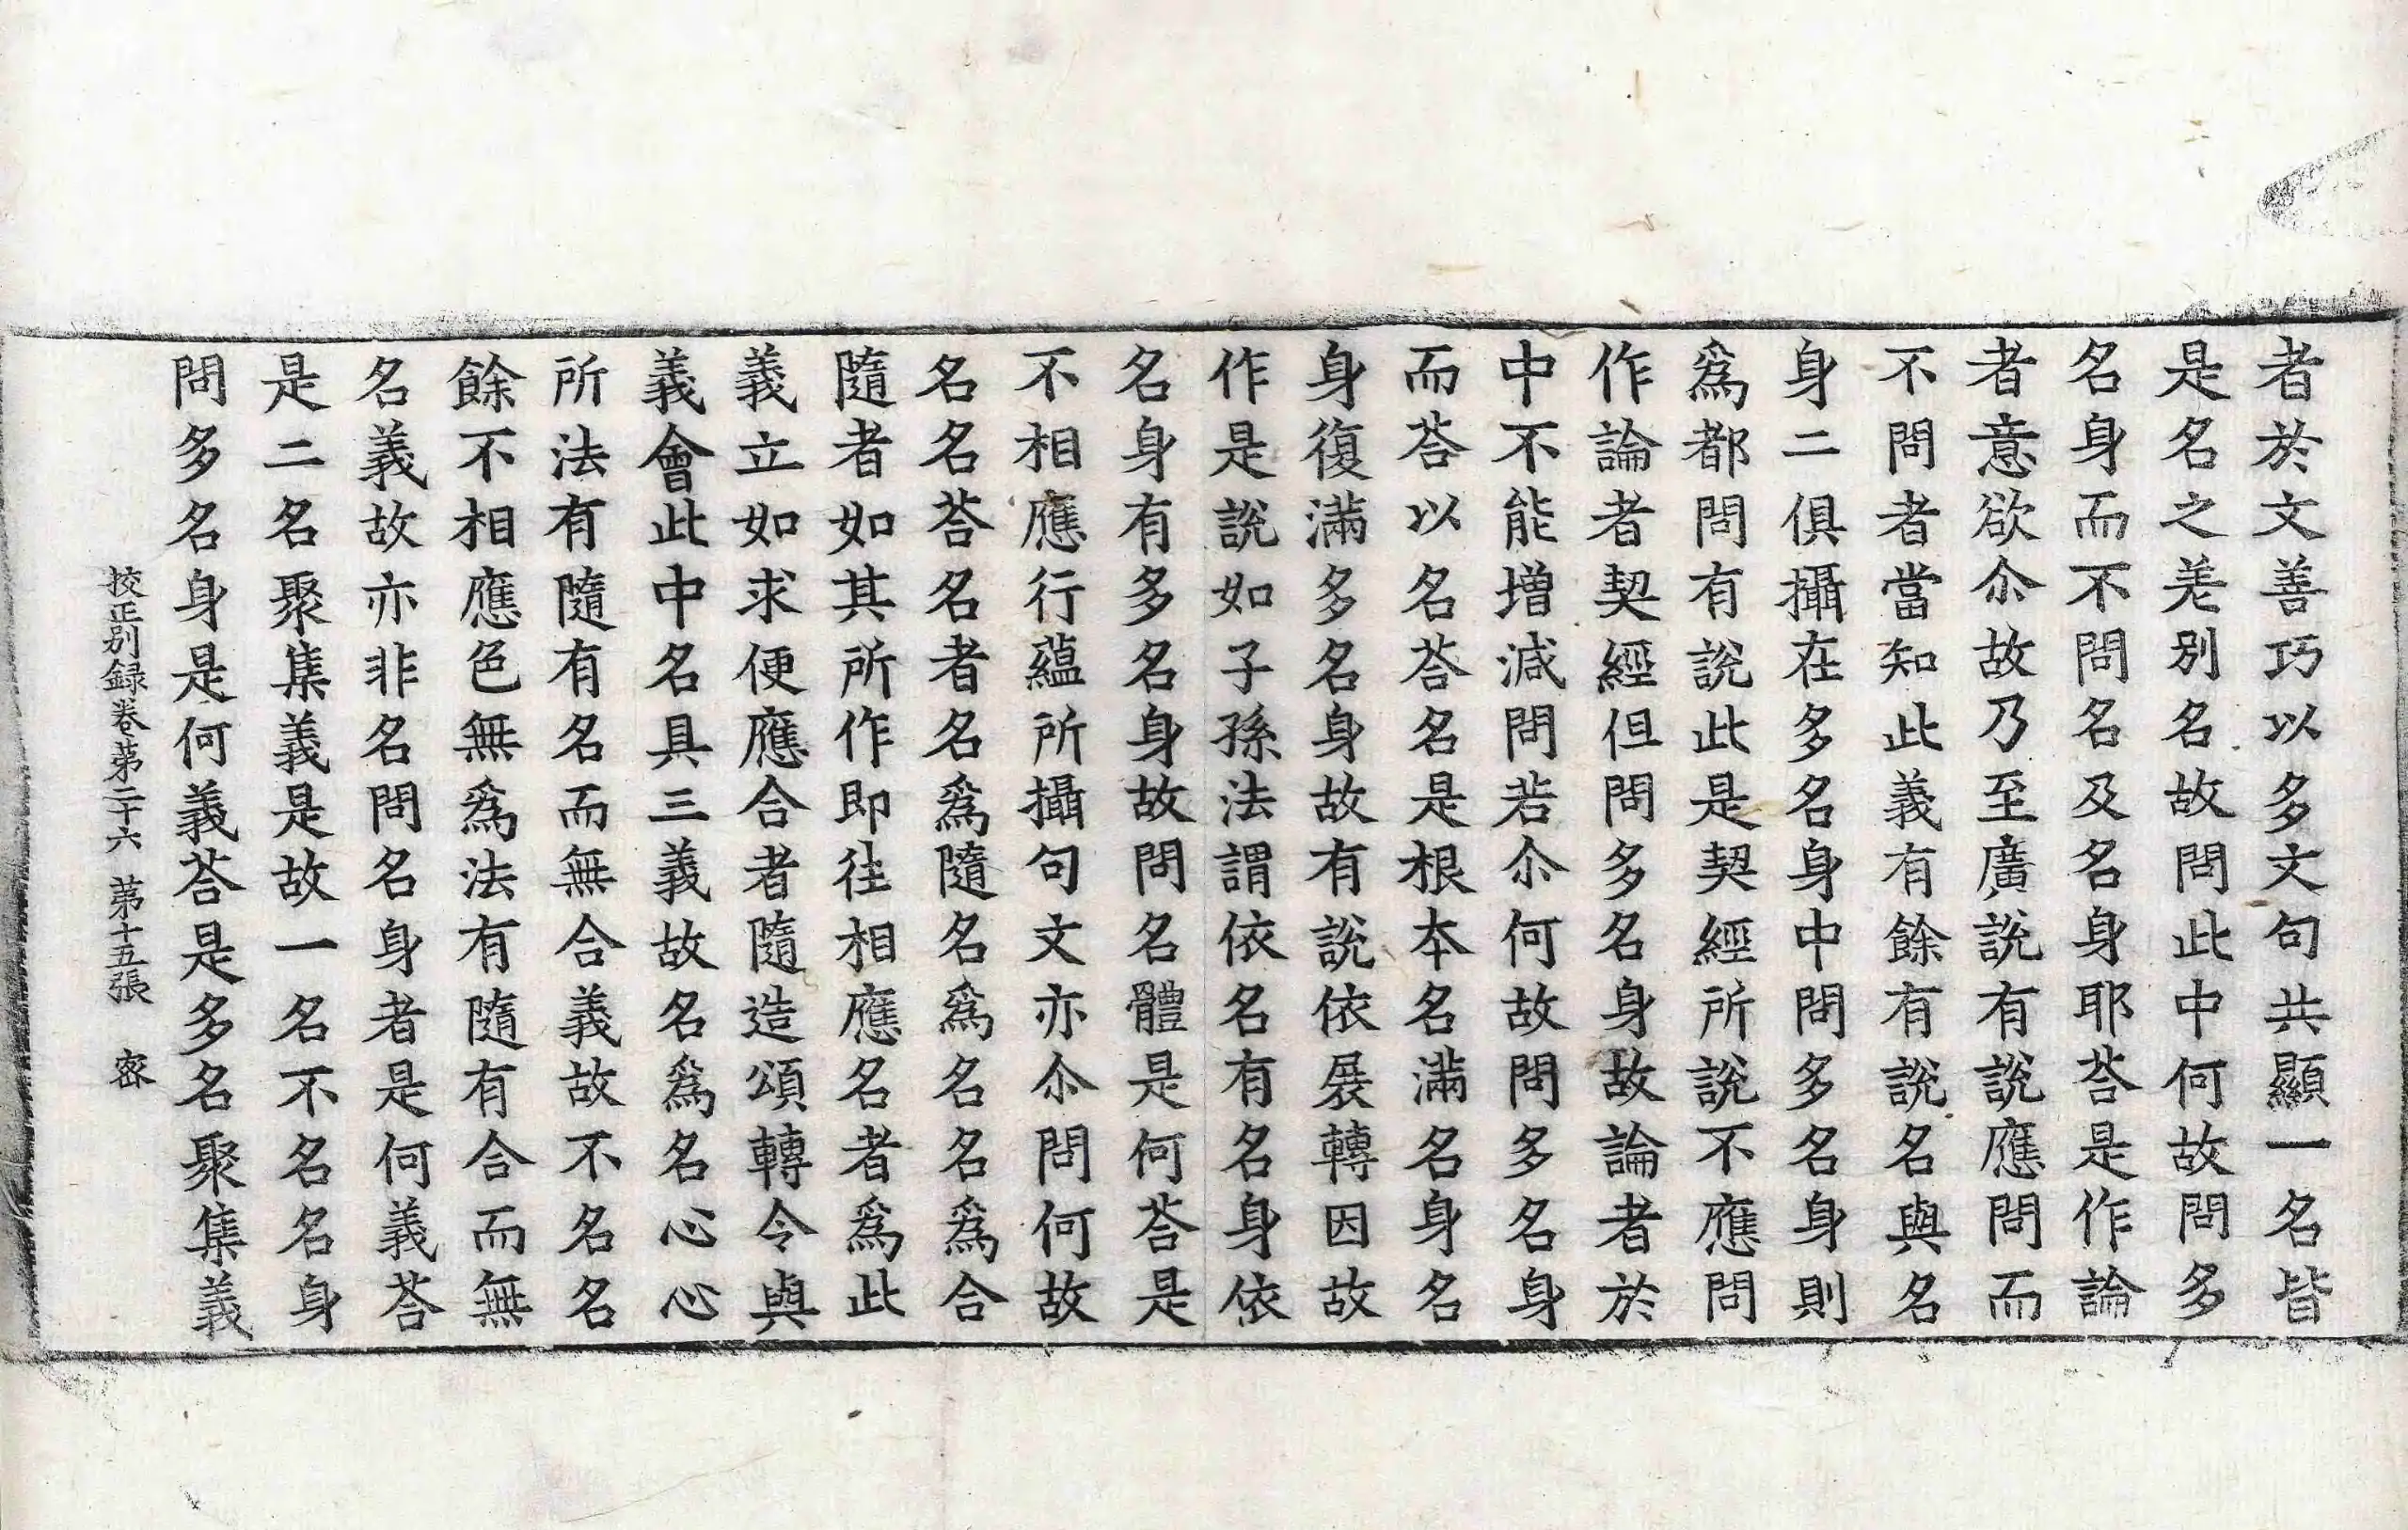 者於文善巧以多文句共顯一名皆
是名之差別名故問此中何故問多
名身而不問名及名身耶荅是作論
者意欲尒故乃至廣說有說應問而
不問者當知此義有餘有說名與名
身二俱攝在多名身中問多名身則
爲都問有說此是契經所說不應問
作論者契經但問多名身故論者於
中不能增減問若尒何故問多名身
而荅以名荅名是根本名滿名身名
身復滿多名身故有說依展轉因故
作是說如子孫法謂依名有名身依
名身有多名身故問名體是何荅是
不相應行蘊所攝句文亦尒問何故
名名荅名者名爲隨名爲名名爲合
隨者如其所作即往相應名者爲此
義立如求便應合者隨造頌轉令與
義會此中名具三義故名爲名心心
所法有隨有名而無合義故不名名
餘不相應色無爲法有隨有合而無
名義故亦非名問名身者是何義荅
是二名聚集義是故一名不名名身
問多名身是何義荅是多名聚集義
挍正别録卷第二十六 第十五張 宻